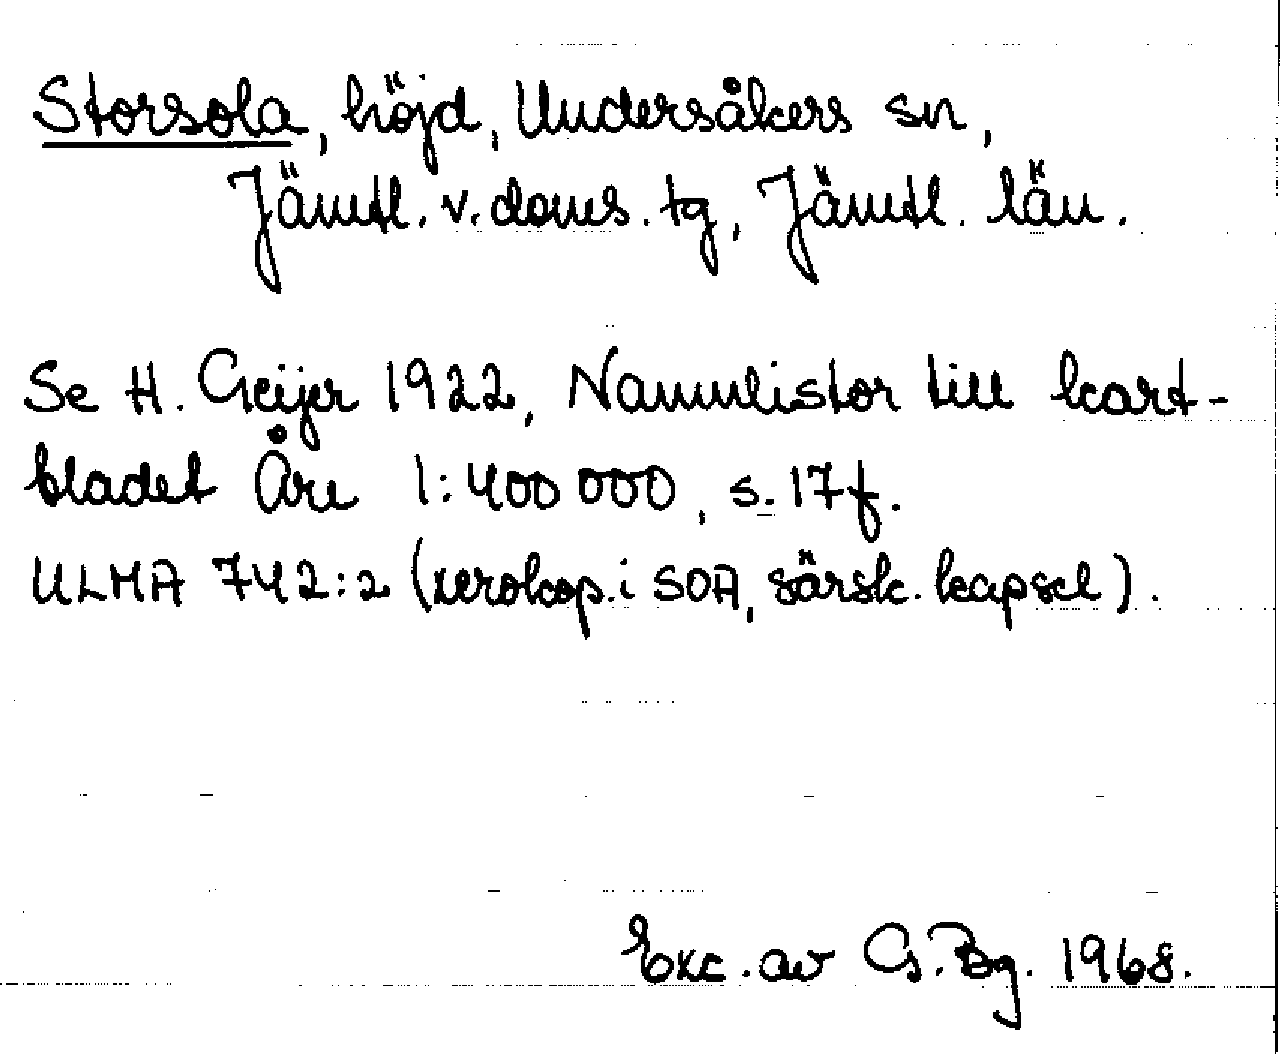 Storsola, höjd, Undersåkers sn,
Jämtl. v. doms. tg, Jämtl. län.
Se H. Geijer 1922, Namnlistor till kart-
bladet Åre 1:400 000, s. 17 f.
ULMA 742:2 (xerokop. i SOA, särsk. kapsel).
Exc. av G. Bg. 1968.